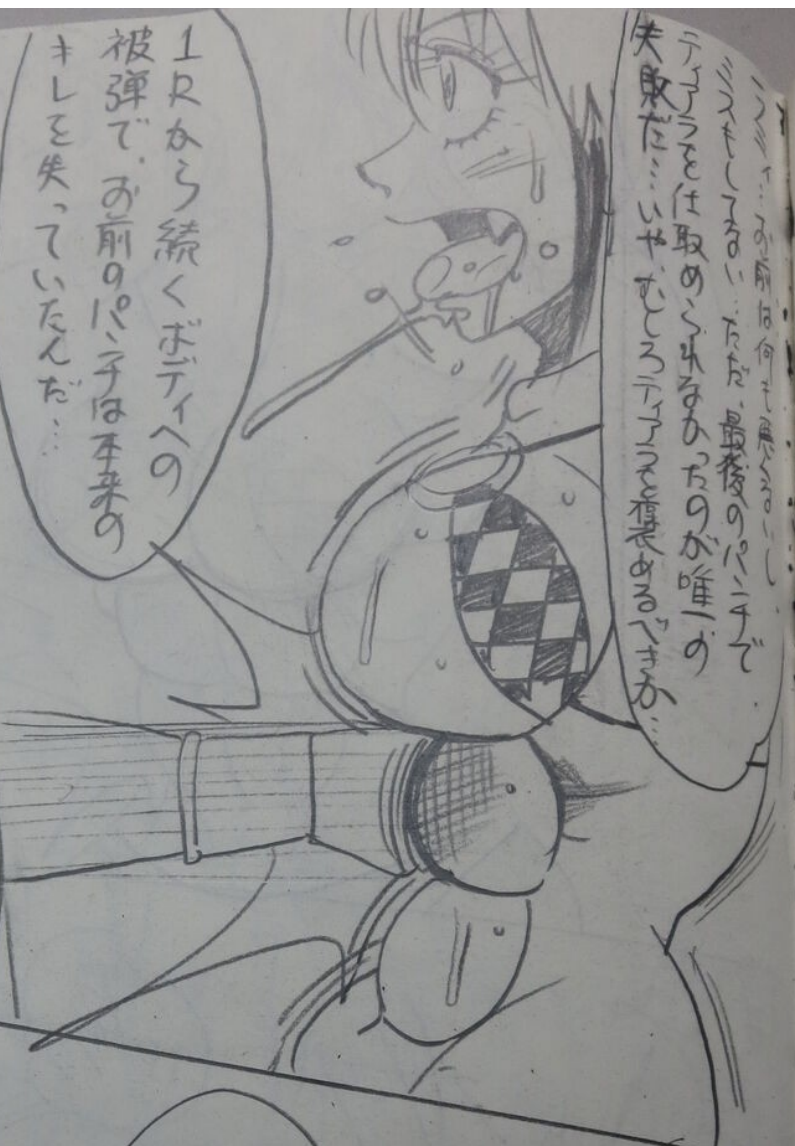 お前は何も悪くないし、
ミスもしてない…ただ、最後のパンチで
ティアラを仕取められなかったのが唯一の
失敗だ…いや、むしろティアラを褒めるべきか…
1Rから続くボディへの
被弾で、お前のパンチは本来の
キレを失っていたんだ…